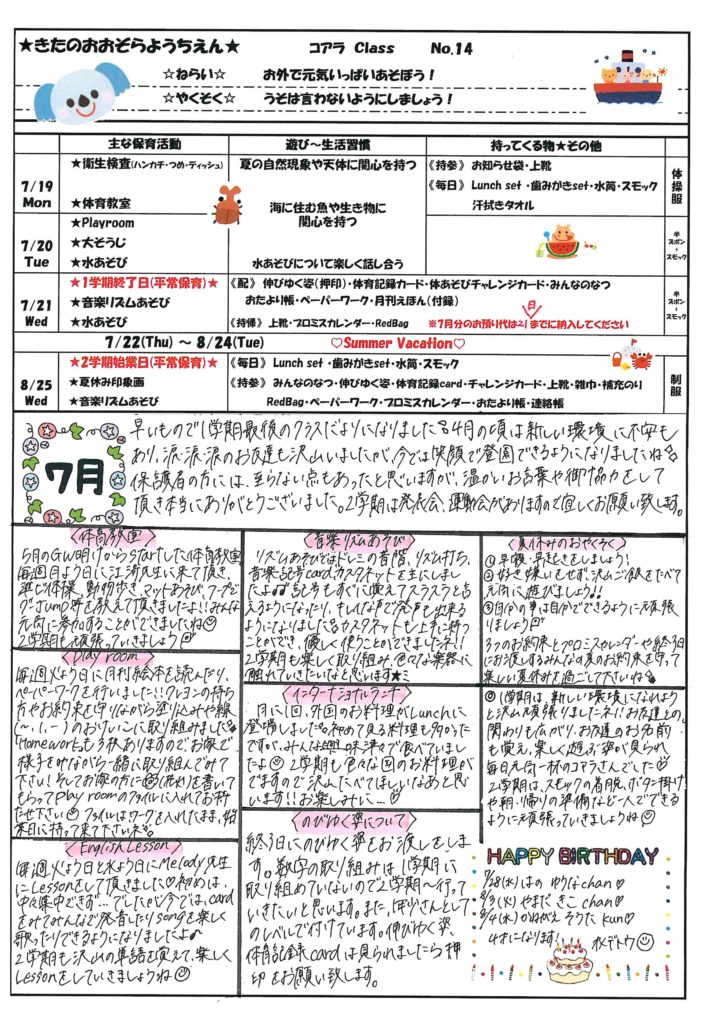 ★きたのおおぞらようちえん★ コアラ Class No.14
☆ねらい☆ お外で元気いっぱいあそぼう！
☆やくそく☆ うそは言わないようにしましょう！
主な保育活動 遊び～生活習慣 持ってくる物★その他
7/19 Mon
★衛生検査(ハンカチ・つめ・ティッシュ)
★体育教室
夏の自然現象や天体に関心を持つ
海に住む魚や生き物に
関心を持つ
《持参》 お知らせ袋・上靴
《毎日》 Lunch set・歯みがきset・水筒・スモック
汗拭きタオル
体操服
7/20 Tue
★Playroom
★大そうじ
★水あそび
水あそびについて楽しく話し合う
半ズボン+スモック
7/21 Wed
★1学期終了日(平常保育)★
★音楽リズムあそび
★水あそび
《配》 伸びゆく姿(押印)・体育記録カード・体あそびチャレンジカード・みんなのなつ
おたより帳・ペーパーワーク・月刊えほん(付録)
《持帰》 上靴・プロミスカレンダー・RedBag ※7月分のお預り代は21日までに納入してください
半ズボン+スモック
7/22(Thu) ～ 8/24(Tue) ♡Summer Vacation♡
8/25 Wed
★2学期始業日(平常保育)★
★夏休み印象画
★音楽リズムあそび
《毎日》 Lunch set・歯みがきset・水筒・スモック
《持参》 みんなのなつ・伸びゆく姿・体育記録card・チャレンジカード・上靴・雑巾・補充のり
RedBag・ペーパーワーク・プロミスカレンダー・おたより帳・連絡帳
制服
7月
早いもので1学期最後のクラスだよりになりました 4月の頃は新しい環境に不安も
あり、涙、涙、涙のお友達も沢山いましたが、今では笑顔で登園できるようになりましたね
保護者の方には、至らない点もあったと思いますが、温かいお言葉や御協力をして
頂き本当にありがとうございました。2学期は発表会、運動会がありますので宜しくお願い致します。
〈体育教室〉
5月のGW明けからstartした体育教室
毎週月よう日に江湖先生に来て頂き、
準び体操、動物歩き、マットあそび、
Jump等を教えて頂きましたよ!!みんな
元気に参加することができましたね
2学期も頑張っていきましょう
〈Play room〉
毎週火よう日に月刊絵本を読んだり、
ペーパーワークを行いました!!クレヨンの持ち
方やお約束を守りながら塗り込みや線
(～、|、-)のおけいこに取り組みました
Homeworkも3枚ありますのでお家で
様子をみながら一緒に取り組んでみて
下さい！そしてお家の方に(花丸)を書いて
もらってPlay roomのファイルに入れてお持
たせ下さい ファイルはワークを入れたまま、始
業日に持って来て下さいネ
〈English Lesson〉
毎週火よう日と水よう日にMelody先生
にLessonをして頂きました♡初めは、
中々集中できず…でしたが今では、card
をみてみんなで発音したりsongを楽しく
歌ったりできるようになりましたよ♪
2学期も沢山の単語を覚えて、楽しく
Lessonをしていきましょうね
〈音楽リズムあそび〉
リズムあそびではドレミの音階、リズム打ち、
音楽記号card、カスタネットを主にしまし
たよ♪記号もすぐに覚えてスラスラと言
えるようになったり、キレイな声で発声も出来る
ようになりました カスタネットも上手に持つ
ことができ、優しく使うことができましたネ!!
2学期も楽しく取り組み、色々な楽器に
触れていきたいなと思います★ミ
〈インターナショナルランチ〉
月に1回、外国のお料理がLunchに
登場しました 初めて見る料理も多かった
ですが、みんな興味津々で食べていました
たよ 2学期も色々な国のお料理が
でますので沢山たべてほしいなぁと思
います!!お楽しみに…♡
〈のびゆく姿について〉
終了日にのびゆく姿をお渡しをしま
す。数字の取り組みは1学期に
取り組めていないので2学期～行って
いきたいと思います。また、年少さんとして
のレベルで付けています。伸びゆく姿、
体育記録cardは見られましたら押
印をお願い致します。
〈夏休みのおやくそく〉
①早寝・早起きをしましょう！
②好き嫌いをせず沢山ご飯をたべて
元気に遊びましょう!!
③自分の事は自分でできるように頑張
りましょう
3つのお約束とプロミスカレンダーや終了日
にお渡しするみんなの夏のお約束を守って
楽しい夏休みを過ごして下さいね
1学期は、新しい環境になれよう
と沢山頑張りましたネ!!お友達との
関わりも広がり、お友達のお名前
も覚え、楽しく遊ぶ姿が見られ
毎日元気一杯のコアラさんでした
2学期は、スモックの着脱、ボタン掛け
や朝・帰りの準備など一人でできる
ように頑張っていきましょうね
HAPPY BIRTHDAY
7/28(水) はの ゆうなchan♡
8/3(火) やまだ きこ chan♡
8/4(水) かねがえ そうた kun♡
4才になります!! オメデトウ